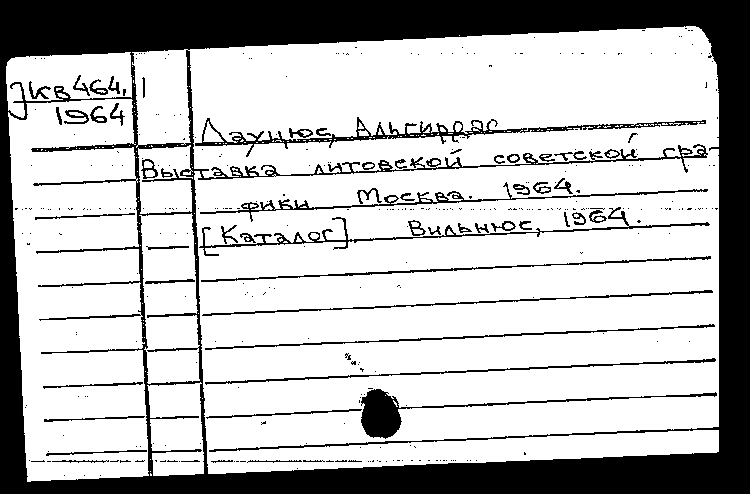 Jкв464,
1964
Лауцюс, Альгирдас
Выставка литовской советской гра-
фики. Москва. 1964.
[Каталог]. Вильнюс, 1964.